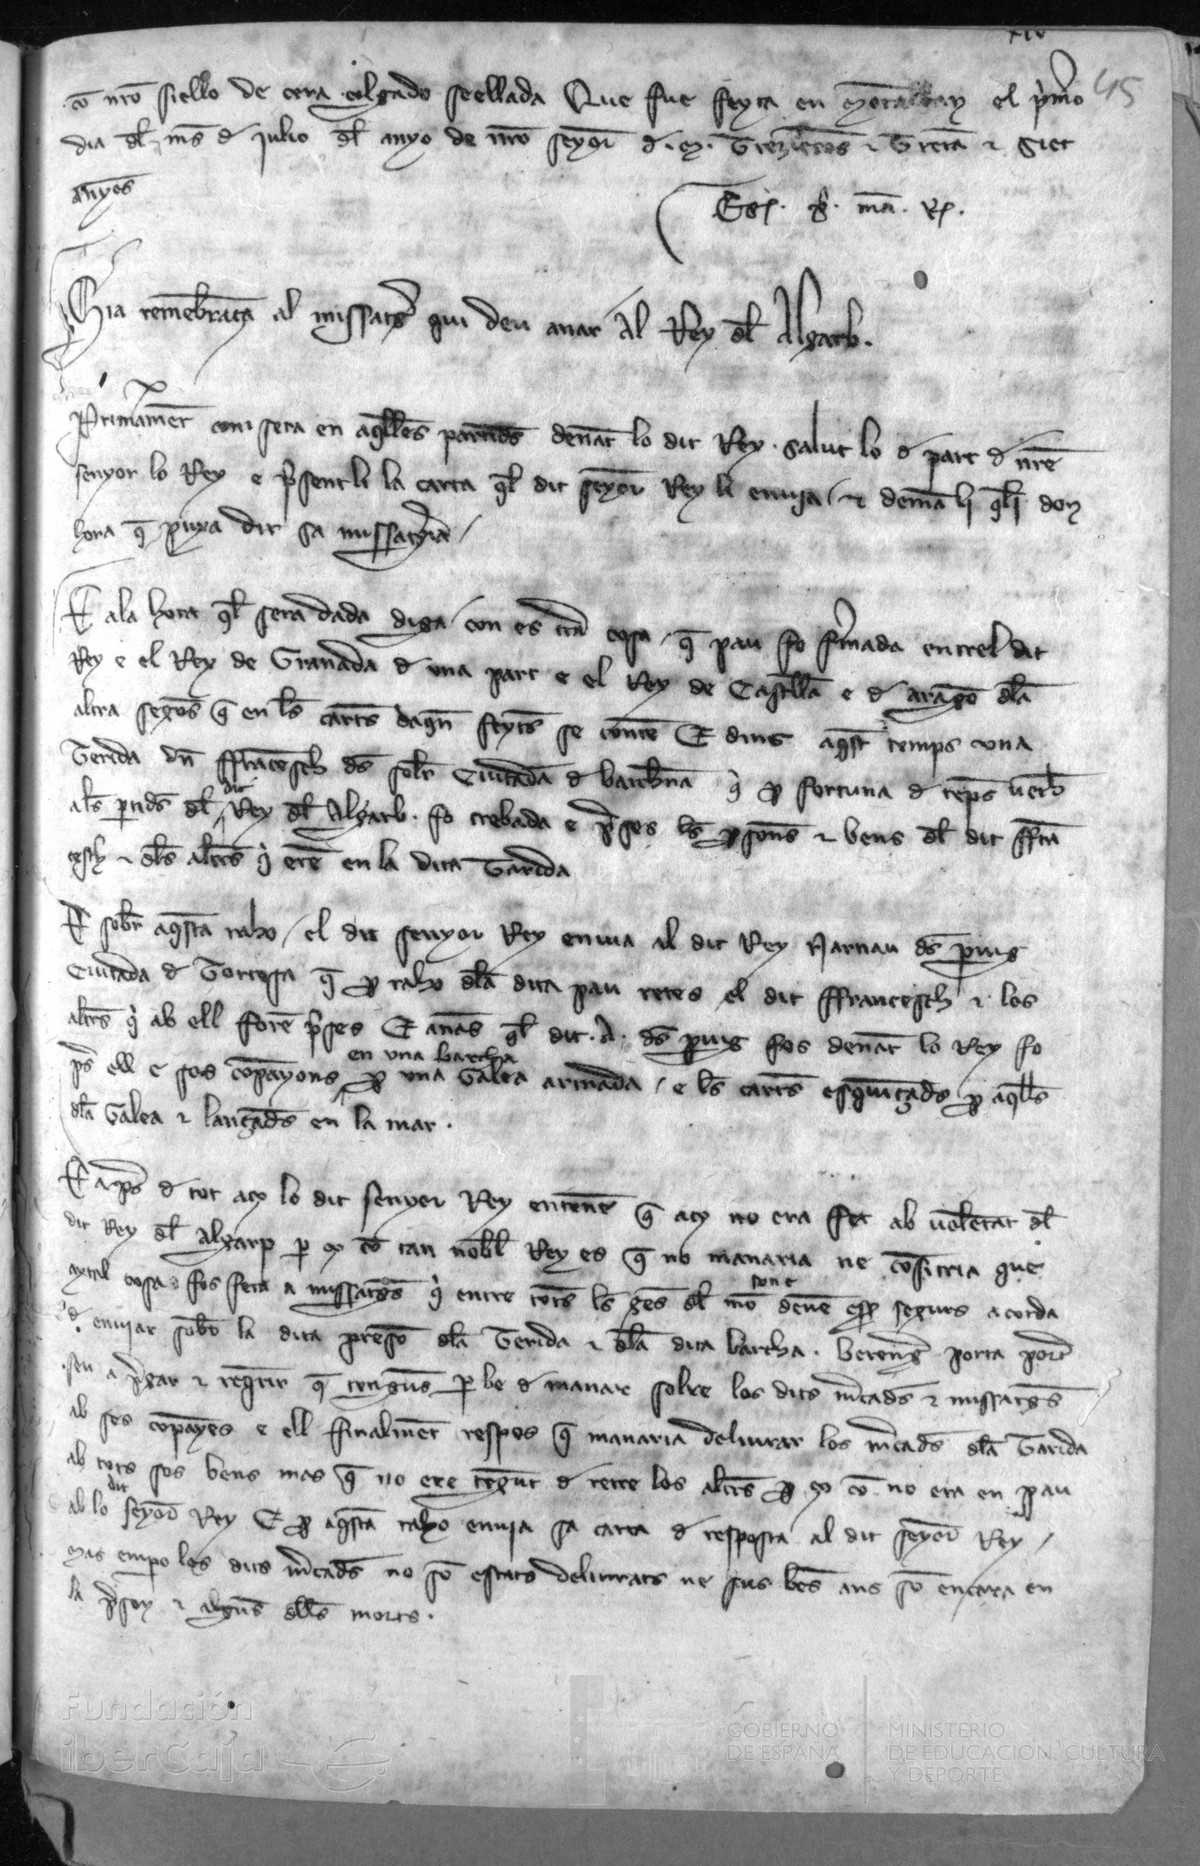 45
co nro siello de cera colgado seellada Que fue feyta en el pimo
dia dl mes d julio dl anyo de nro seyor d. m. Trezietos ⁊ Treta ⁊ siet
anyos
Sia remebraça al missatge qui deu anar Al Rey dl Algarb.
Primamet com sera en aqlles partides denat lo dit Rey. salut lo d part d nre
senyor lo Rey e psentli la carta ql dit seyor Rey li enuia / ⁊ demali qli don
hora q puxa dir sa missatgia /
E ala hora ql sera dada diga / con es cta cosa / q pau fo fmada entrel dit
Rey e el Rey de Granada d una part e el Rey de Castella e d arago dla
altra segos q en les cartes daqn feytes se conte E dins aqst temps una
Terida dn ffracesch des soler Ciutada d barchna q p fortuna d temps uench
als ptides dl dit Rey dl Algarb. fo trobada e pses les psones ⁊ bens dl dit ffra
cesch ⁊ dls altres q ere en la dita Tarida
E sobr aqsta raho / el dit senyor Rey enuia al dit Rey Narnau des puig
Ciutada d Tortosa q p raho dla dita pau retes el dit ffrancesch ⁊ los
altres q ab ell fore pses E anas ql dit. A. des puig fos denat lo Rey fo
ps ell e sos copayons en una barcha p una Galea armada / e les cartes esquinçades p aqlls
dla Galea ⁊ lançades en la mar.
E aps d tot aço lo dit senyor Rey entene q aço no era fet ab uoletat dl
dit Rey dl Algarp p ço co tan nobl Rey es q no manaria ne cositria que
aytal cosa fos feta a missatges q entre totes les ges dl mo deue eser segurs acorda
d enuiar sobr la dita preso dla Terida ⁊ dla dita barcha. berengr porta
seu a pgar ⁊ reqrir q tengues p be d manar sobre los dits mcades ⁊ missatges
ab ses copayes e ell finalmet respos q manaria deliurar los mcades dla Tarida
ab tots sos bens mas q no ere tegut d retre los altres p ço co no era en pau
ab lo dit seyor Rey E p aqsta raho enuia sa carta d resposta al dit seyor Rey /
mas empo los dits mcades no so estats deliurats ne sus bes ans so encara en
la psoy ⁊ algus dlls morts.
Fundación
iberCaja
GOBIERNO
DE ESPAÑA
MINISTERIO
DE EDUCACIÓN, CULTURA
Y DEPORTE